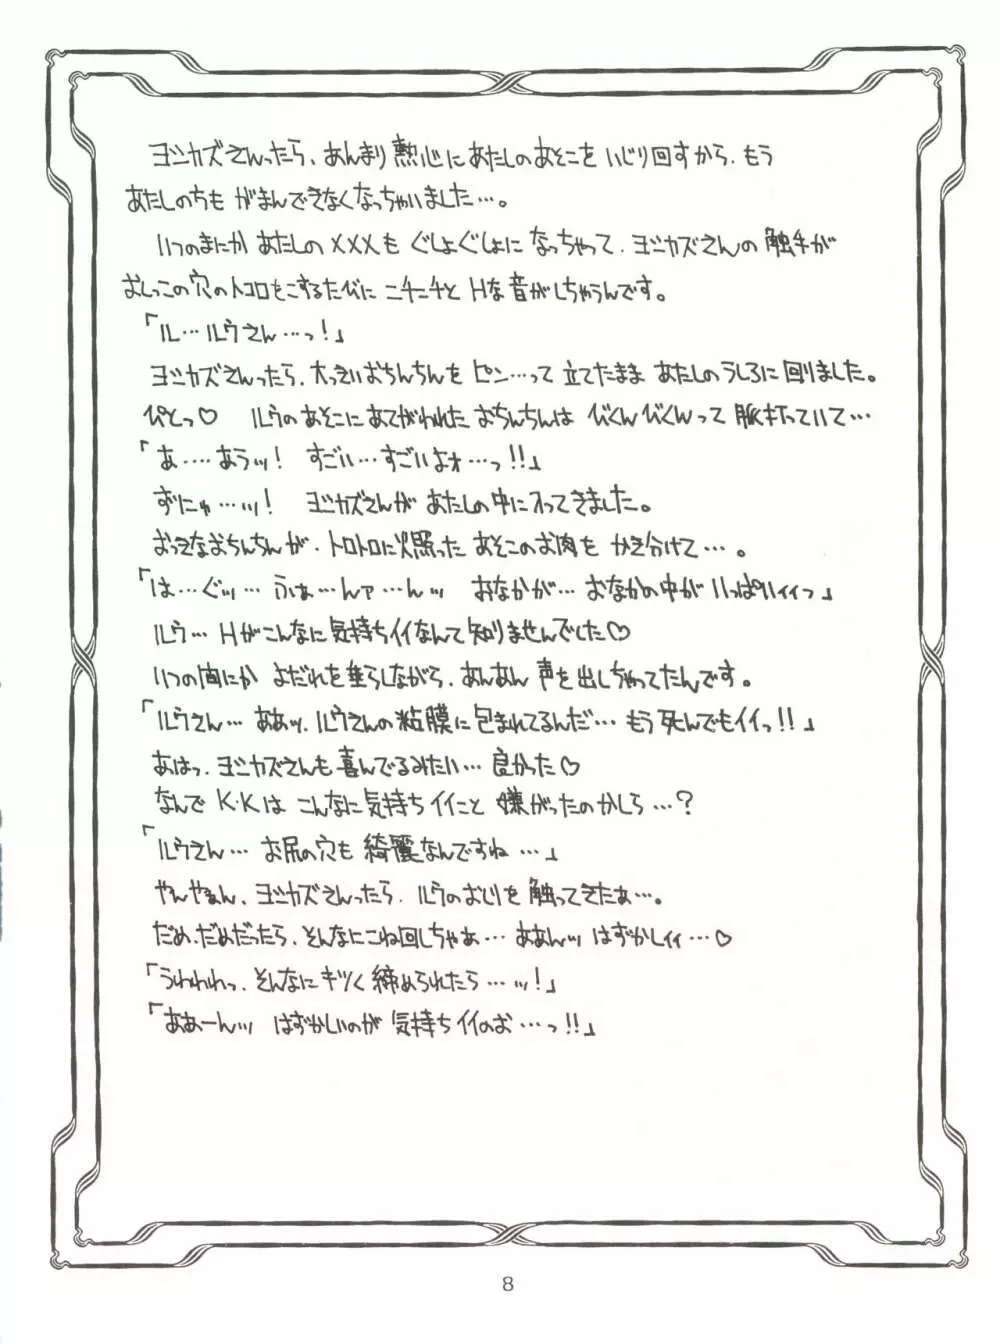 ヨシカズさんったら、あんまり熱心にあたしのあそこをいじり回すから、もう
あたしのちも がまんできなくなっちゃいました…。
いつのまにか あたしの×××も ぐしょぐしょに なっちゃって、ヨシカズさんの 触手が
おしっこの穴のトコロをこするたびに ニチニチと Hな音がしちゃうんです。
「ル…ルウさん…っ!」
ヨシカズさんったら、大っきいおちんちんを ピン…って 立てたまま あたしのうしろに回りました。
ぴとっ♡ ルウのあそこにあてがわれた おちんちんは びくんびくんって 脈打っていて…
「あ‥‥あうッ! すごい…すごいよォ…っ!!」
ずにゅ…ッ! ヨシカズさんが あたしの中に入ってきました。
おっきなおちんちんが、トロトロに火照った あそこのお肉を かき分けて…。
「は…ぐッ… ふぁ…んァ…んッ おなかが… おなかの中が いっぱいィィっ」
ルウ… Hがこんなに気持ちイイなんて知りませんでした♡
いつの間にか よだれを垂らしながら、あんあん 声を出しちゃってたんです。
「ルウさん… ああッ、ルウさんの粘膜に包まれてるんだ… もう死んでもイイっ!!」
あはっ、ヨシカズさんも喜んでるみたい… 良かった♡
なんで K・Kは こんなに気持ちイイこと 嫌がったのかしら…?
「ルウさん… お尻の穴も 綺麗なんですね…」
やんやぁん、ヨシカズさんったら、ルウのおしりを 触ってきたぁ…。
だめ、だめだったら、そんなにこね回しちゃあ… ああんッ はずかしィィ…♡
「うわわわっ、そんなにキツく 締められたら…ッ!」
「ああーんッ はずかしいのが 気持ちイイのお…っ!!」
8